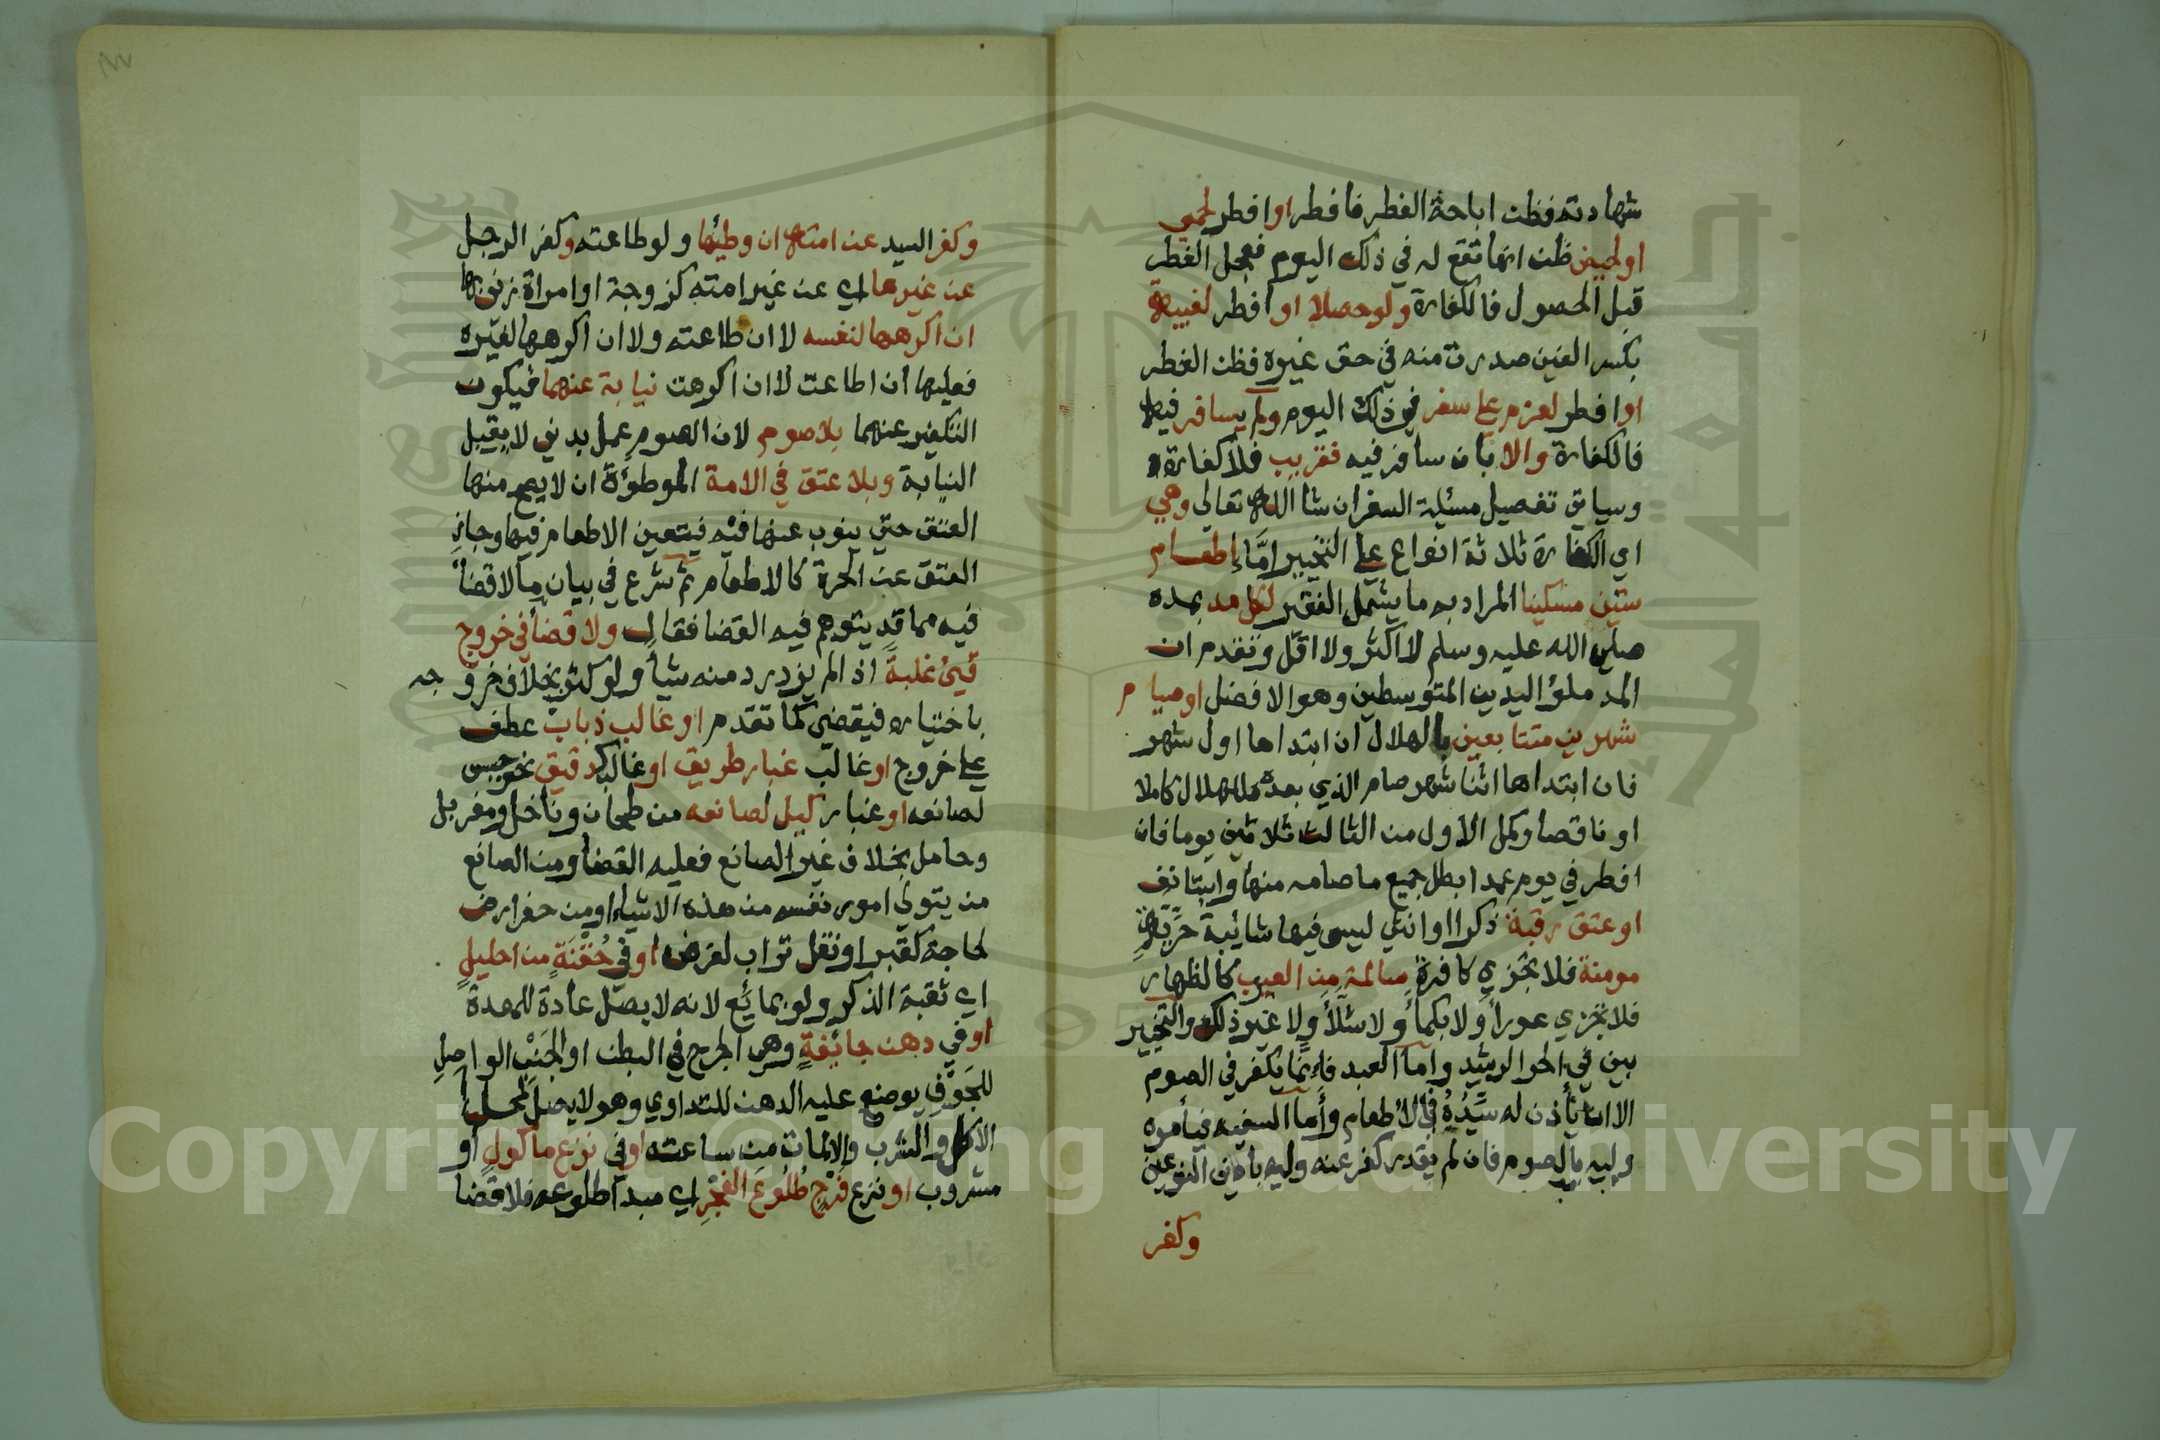 شهادته فظن اباحة الفطر فافطر او افطر لحمي
او لحيض ظن انها تقع له في ذلك اليوم فعجل الفطر
قبل الحصول فالكفارة ولو حصلا او افطر لغيبة
بكسر الغين صدرت منه في حق غيره فظن الفطر
او افطر لعزم على سفر في ذلك اليوم ولم يسافر فيه
فالكفارة والا بان سافر فيه فقريب فلا كفارة
وسياتي تفصيل مسئلة السفر ان شا الله تعالي وهي
اي الكفارة ثلاثة انواع علي التخيير امَّا إطعام
ستين مسكينا المراد به ما يشمل الفقير لكل مد بمده
صلي الله عليه وسلم لا اكثر ولا اقل وتقدم ان
المد ملؤ اليدين المتوسطين وهو الافضل او صيام
شهرين متتابعين بالهلال ان ابتداها اول شهر
فان ابتداها اثنا شهر صام الذي بعده بالهلال كاملا
او ناقصا وكمل الاول من الثالث ثلاثين يوما فان
افطر في يوم عمدا بطل جميع ما صامه منها وابتانف
او عتق رقبة ذكرا او انثي ليس فيها شائبة حرية
مومنة فلا تجزي كافرة سالمة من العيوب كالظهار
فلا تجزي عوراً ولا بكماً ولا شلاً ولا غير ذلك والتخيير
بين في الحر الرشيد واما العبد فانما يكفر في الصوم
الا ان يأذن له سيّدُهُ في الاطعام وأما السفيه فيأمره
وليه بالصوم فان لم يقدر كفر عنه وليه بادني النوعين
وكفر
وكفر السيد عن امته ان وطئها ولو طاعته وكفر الرجل
عن غيرها اي عن غير امته كزوجة او امراة زني بها
ان اكرهها لنفسه لا ان طاعته ولا ان اكرهها لغيره
فعليها ان اطاعت لا ان اكرهت نيابة عنهما فيكون
التكفير عنهما بلا صوم لان الصوم عمل بدني لا يقبل
النيابة وبلا عتق في الامة الموطؤة ان لا يصح منها
العتق حتي ينوب عنها فيه فيتعين الاطعام فيها وجاز
العتق عن الحرة كالاطعام ثم شرع في بيان ما لا قضاً
فيه مما قد يتوهم فيه القضا فقال ولا قضاً في خروج
قيئ غلبة اذا لم يزدرد منه شياً ولو كثر بخلاف خروجه
باختياره فيقضي كما تقدم او غالب ذباب عطف
علي خروج او غالب غبار طريق او غالب كدقيق نحو جبس
لصانعه او غبار كيل لصانعه من طحان وناخل ومغربل
وحامل بخلاف غير الصانع فعليه القضا ومن الصانع
من يتولي امور نفسه من هذه الاشياء او من حفر ارض
لحاجة كقبر او نقل تراب لغرض او في حُقْنَةٍ من احليلٍ
اي ثقبة الذكر ولو بمائع لانه لا يصل عادة للمعدة
او في دهن جائفةٍ وهي الجرح في البطن او الجَنْب الواصل
للجَوْفِ يوضع عليه الدهن للتداوي وهو لا يصل لمحل
الاكل والشرب والا لمات من ساعته او في نزع ماكولٍ او
مشروب او نزع فَرْجٍ طُلُوعَ الفَجْرِ اي مبدا طلوعه فلا قضا
Copyright © King Saud University